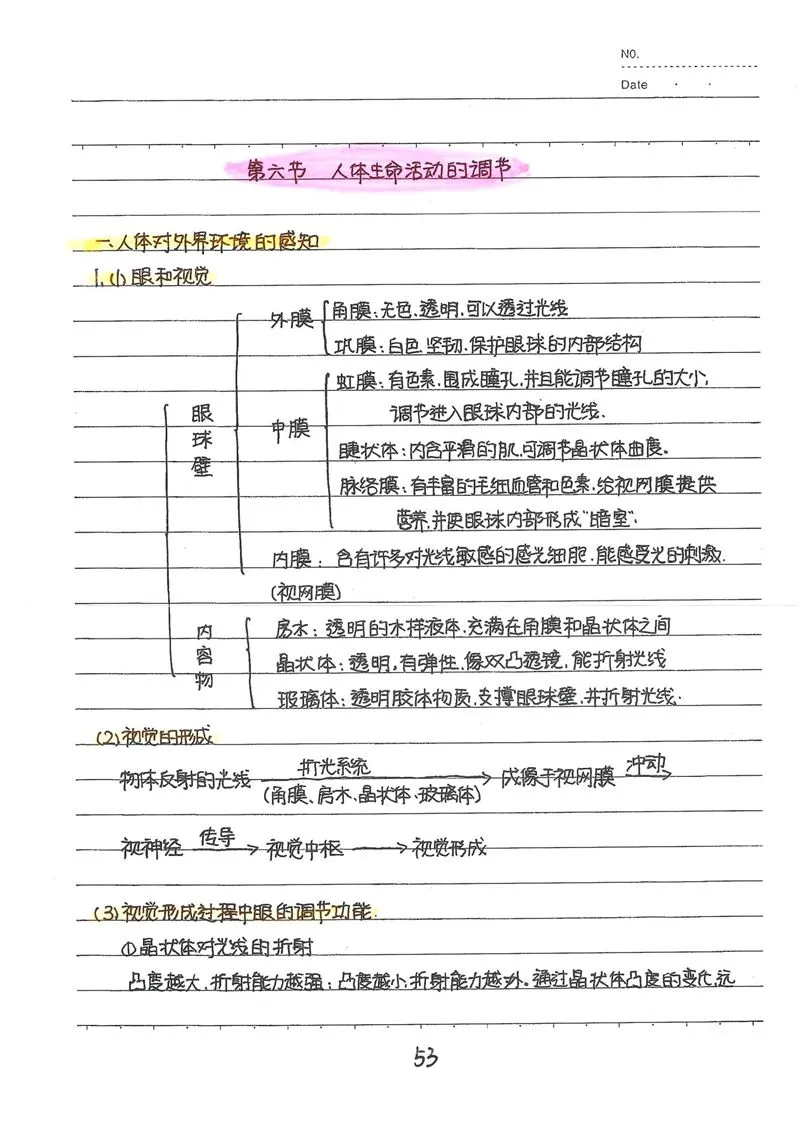 NO.
Date
第六节 人体生命活动的调节
一.人体对外界环境的感知
1.(1)眼和视觉
眼球壁
外膜
角膜:无色.透明,可以透过光线
巩膜:白色.坚韧.保护眼球的内部结构
中膜
虹膜:有色素,围成瞳孔,并且能调节瞳孔的大小,
调节进入眼球内部的光线.
睫状体:内含平滑的肌,可调节晶状体曲度。
脉络膜:有丰富的毛细血管和色素,给视网膜提供
营养,并使眼球内部形成“暗室”.
内膜:含有许多对光线敏感的感光细胞.能感受光的刺激.
(视网膜)
内容物
房水:透明的水样液体.充满在角膜和晶状体之间
晶状体:透明,有弹性,像双凸透镜,能折射光线
玻璃体:透明胶体物质,支撑眼球壁,并折射光线.
(2)视觉的形成
物体反射的光线 折光系统 → 成像于视网膜 冲动→
(角膜、房水.晶状体.玻璃体)
视神经 传导→ 视觉中枢 → 视觉形成
(3)视觉形成过程中眼的调节功能.
①晶状体对光线的折射
凸度越大,折射能力越强;凸度越小,折射能力越。通过晶状体凸度的变化,远
53